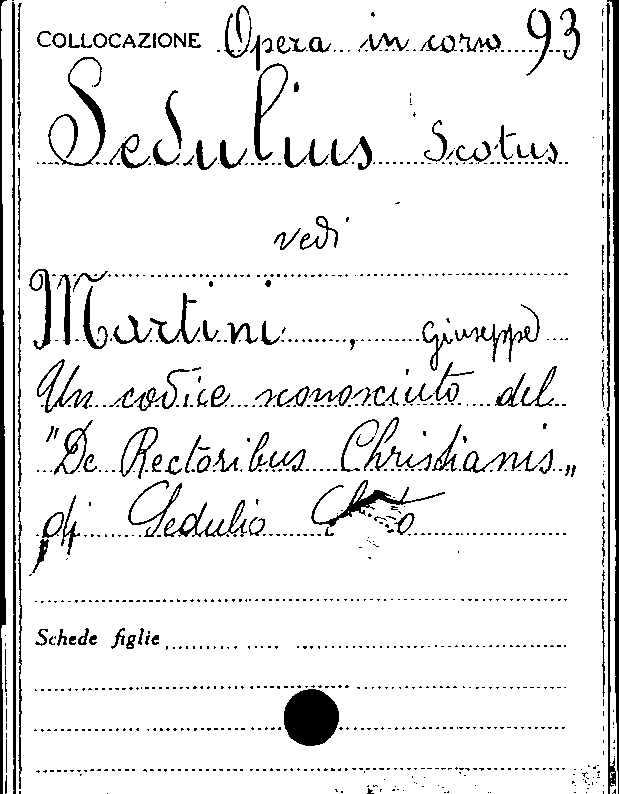 COLLOCAZIONE Opera in corso 93
Sedulius Scotus
vedi
Martini, Giuseppe
Un codice sconosciuto del
"De Rectoribus Christianis„
di Sedulio
Schede figlie